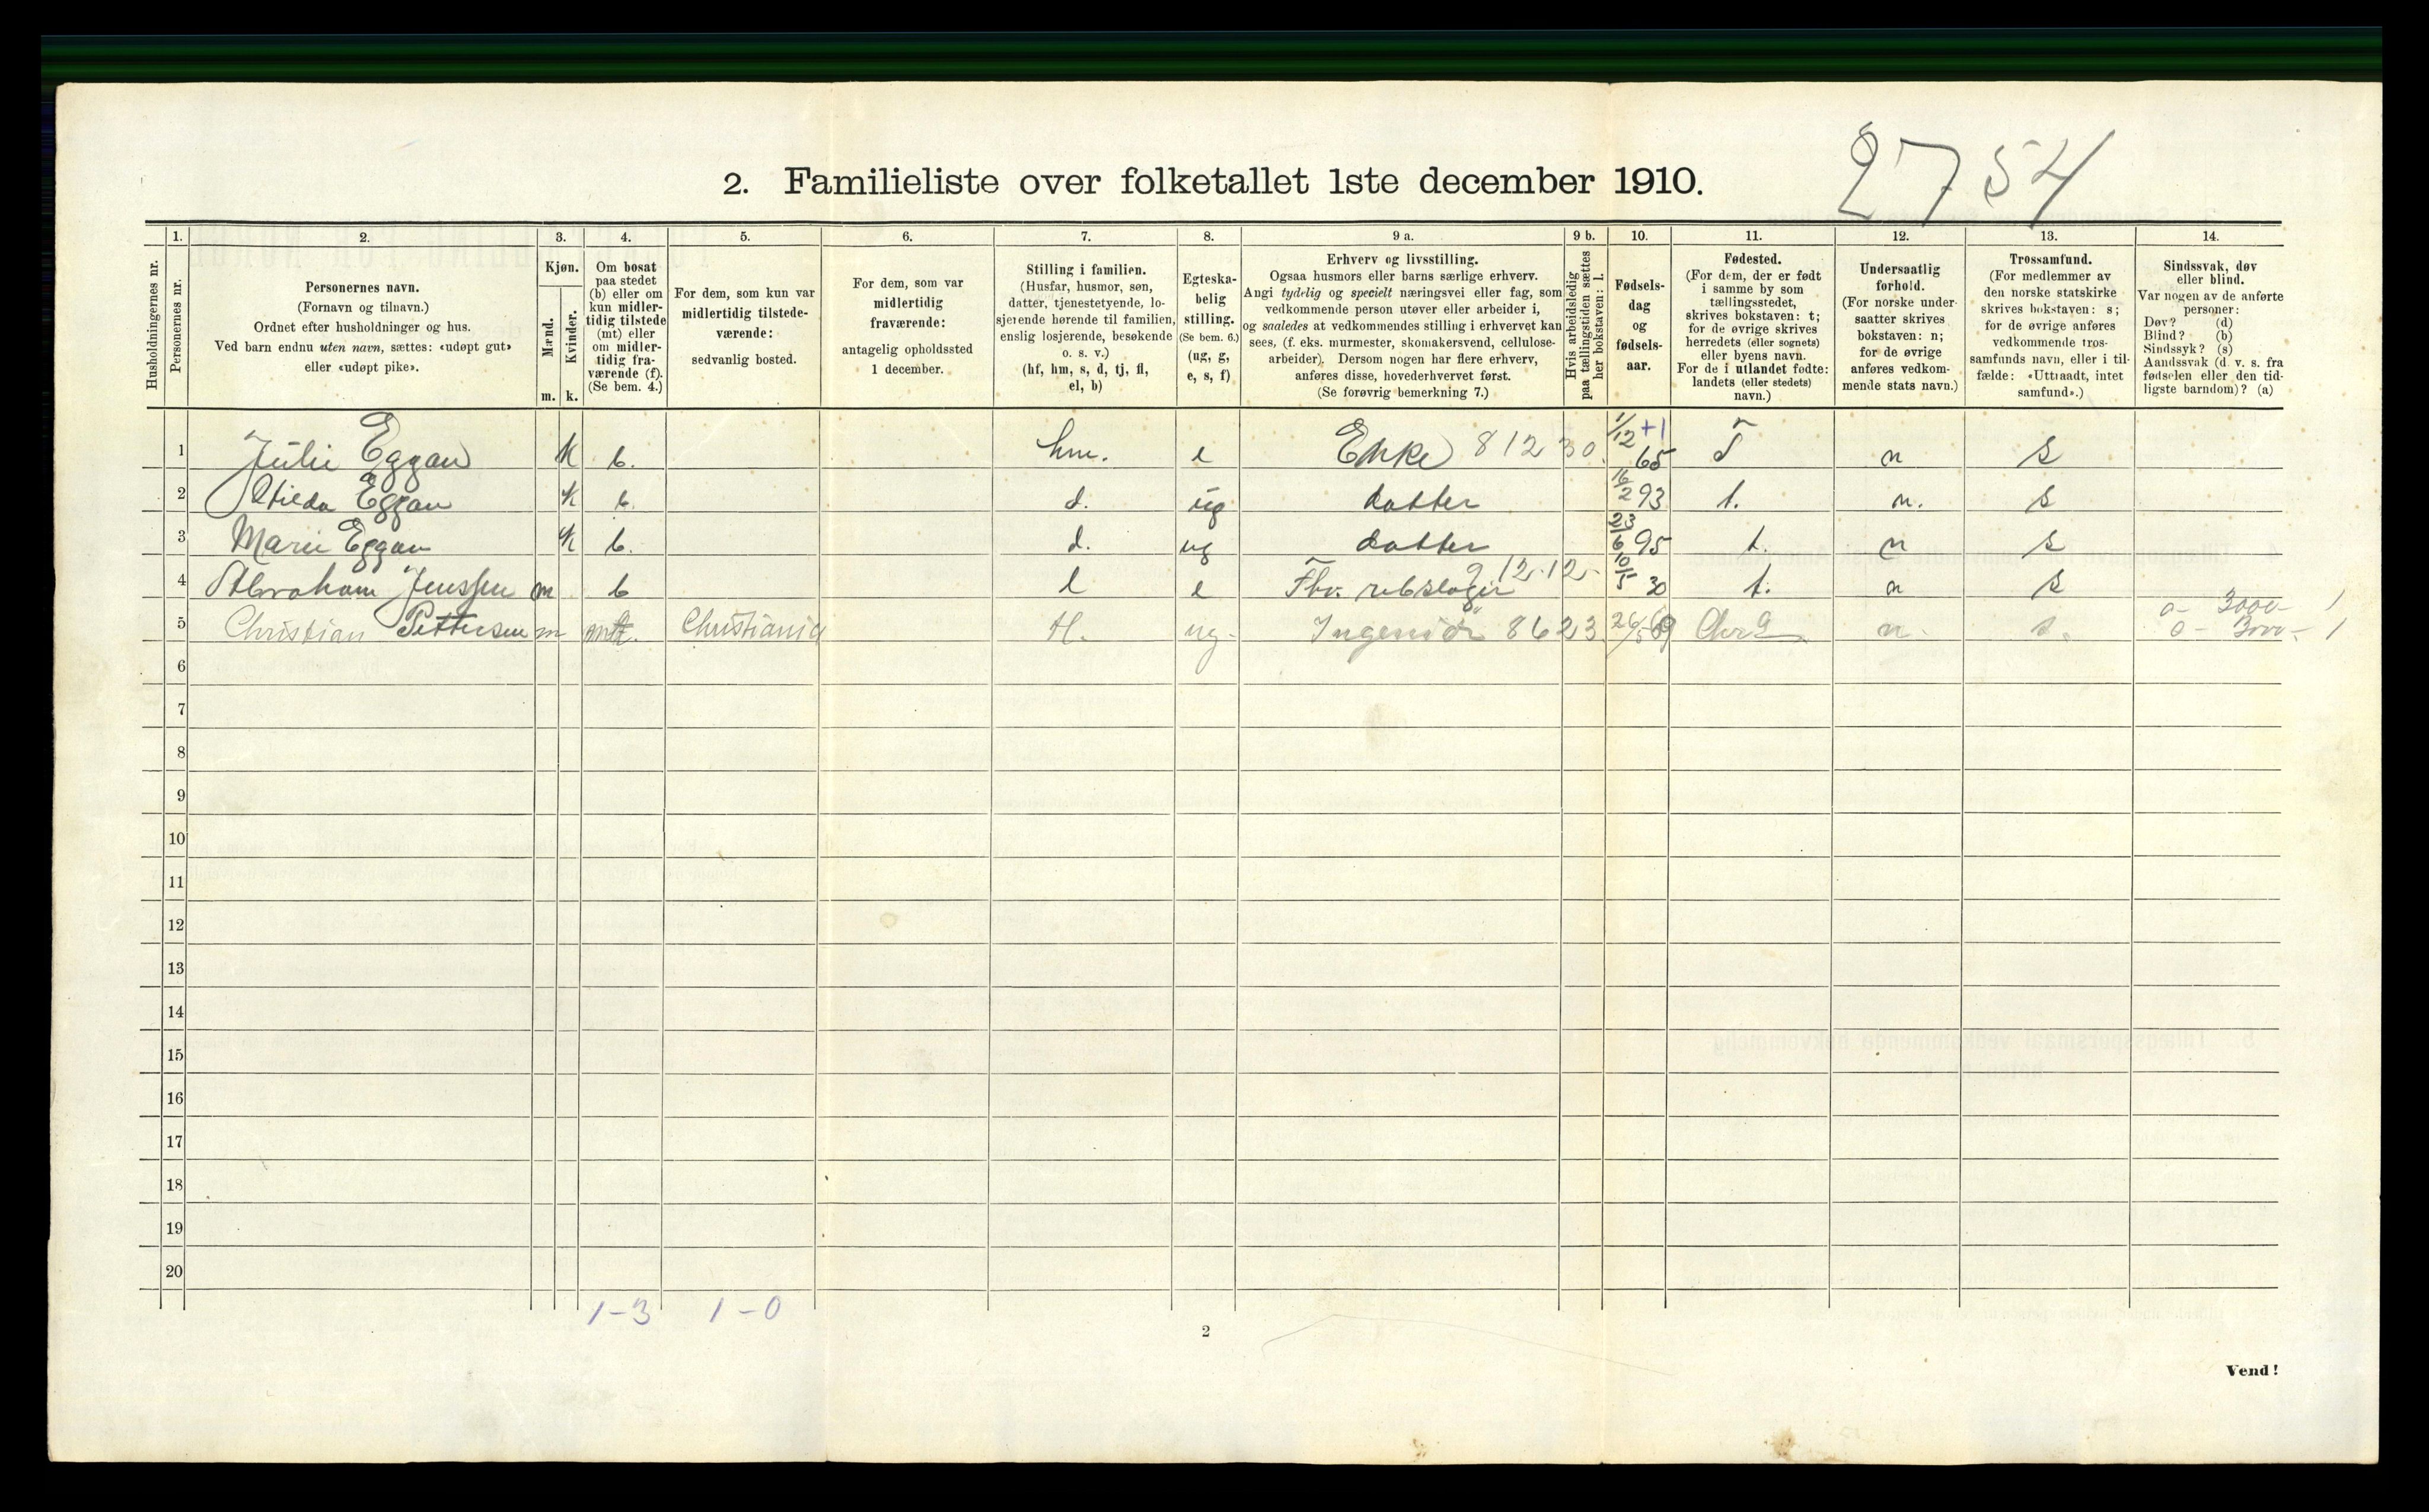 2754
2. Familieliste over folketallet 1ste december 1910.
Husholdningernes nr.
1.
Personernes nr.
2.
Personernes navn.
(Fornavn og tilnavn.)
Ordnet efter husholdninger og hus.
Ved barn endnu uten navn, sættes: «udøpt gut»
eller «udøpt pike».
3.
Kjøn.
Mænd.
Kvinder.
m. k.
4.
Om bosat
paa stedet
(b) eller om
kun midler-
tidig tilstede
(mt) eller
om midler-
tidig fra-
værende (f).
(Se bem. 4.)
5.
For dem, som kun var
midlertidig tilstede-
værende:
sedvanlig bosted.
6.
For dem, som var
midlertidig
fraværende:
antagelig opholdssted
1 december.
7.
Stilling i familien.
(Husfar, husmor, søn,
datter, tjenestetyende, lo-
sjerende hørende til familien,
enslig losjerende, besøkende
o. s. v.)
(hf, hm, s, d, tj, fl,
el, b)
8.
Egteska-
belig
stilling.
(Se bem. 6.)
(ug, g,
e, s, f)
9 a.
Erhverv og livsstilling.
Ogsaa husmors eller barns særlige erhverv.
Angi tydelig og specielt næringsvei eller fag, som
vedkommende person utøver eller arbeider i,
og saaledes at vedkommendes stilling i erhvervet kan
sees, (f. eks. murmester, skomakersvend, cellulose-
arbeider). Dersom nogen har flere erhverv,
anføres disse, hovederhvervet først.
(Se forøvrig bemerkning 7.)
9 b.
Hvis arbeidsledig
paa tællingstiden sættes
her bokstaven: l.
10.
Fødsels-
dag
og
fødsels-
aar.
11.
Fødested.
(For dem, der er født
i samme by som
tællingsstedet,
skrives bokstaven: t;
for de øvrige skrives
herredets (eller sognets)
eller byens navn.
For de i utlandet fødte:
landets (eller stedets)
navn.)
12.
Undersaatlig
forhold.
(For norske under-
saatter skrives
bokstaven: n;
for de øvrige
anføres vedkom-
mende stats navn.)
13.
Trossamfund.
(For medlemmer av
den norske statskirke
skrives bokstaven: s;
for de øvrige anføres
vedkommende tros-
samfunds navn, eller i til-
fælde: «Uttraadt, intet
samfund».)
14.
Sindssvak, døv
eller blind.
Var nogen av de anførte
personer:
Døv? (d)
Blind? (b)
Sindssyk? (s)
Aandssvak (d. v. s. fra
fødselen eller den tid-
ligste barndom)? (a)
1 Julie Eggan k b. hm. e Enke 81230. 1/12 +1 65 T n s
2 Eggan k b. d. ug datter 16/2 93 t. n. s
3 Marie Eggan k b. d. ug datter 23/6 95 t. n s
4 Abraham Jenssen m b l e Fhv. rebslager 912.12- 10/5 30 t. n s
5 Christian Pettersen m mt. Christiania ug. Ingeniør 8623 26/5 69 Chra n. s. 0- 3000- 1
0- 3000- 1
6
7
8
9
10
11
12
13
14
15
16
17
18
19
20
1-3 1-0
2
Vend!